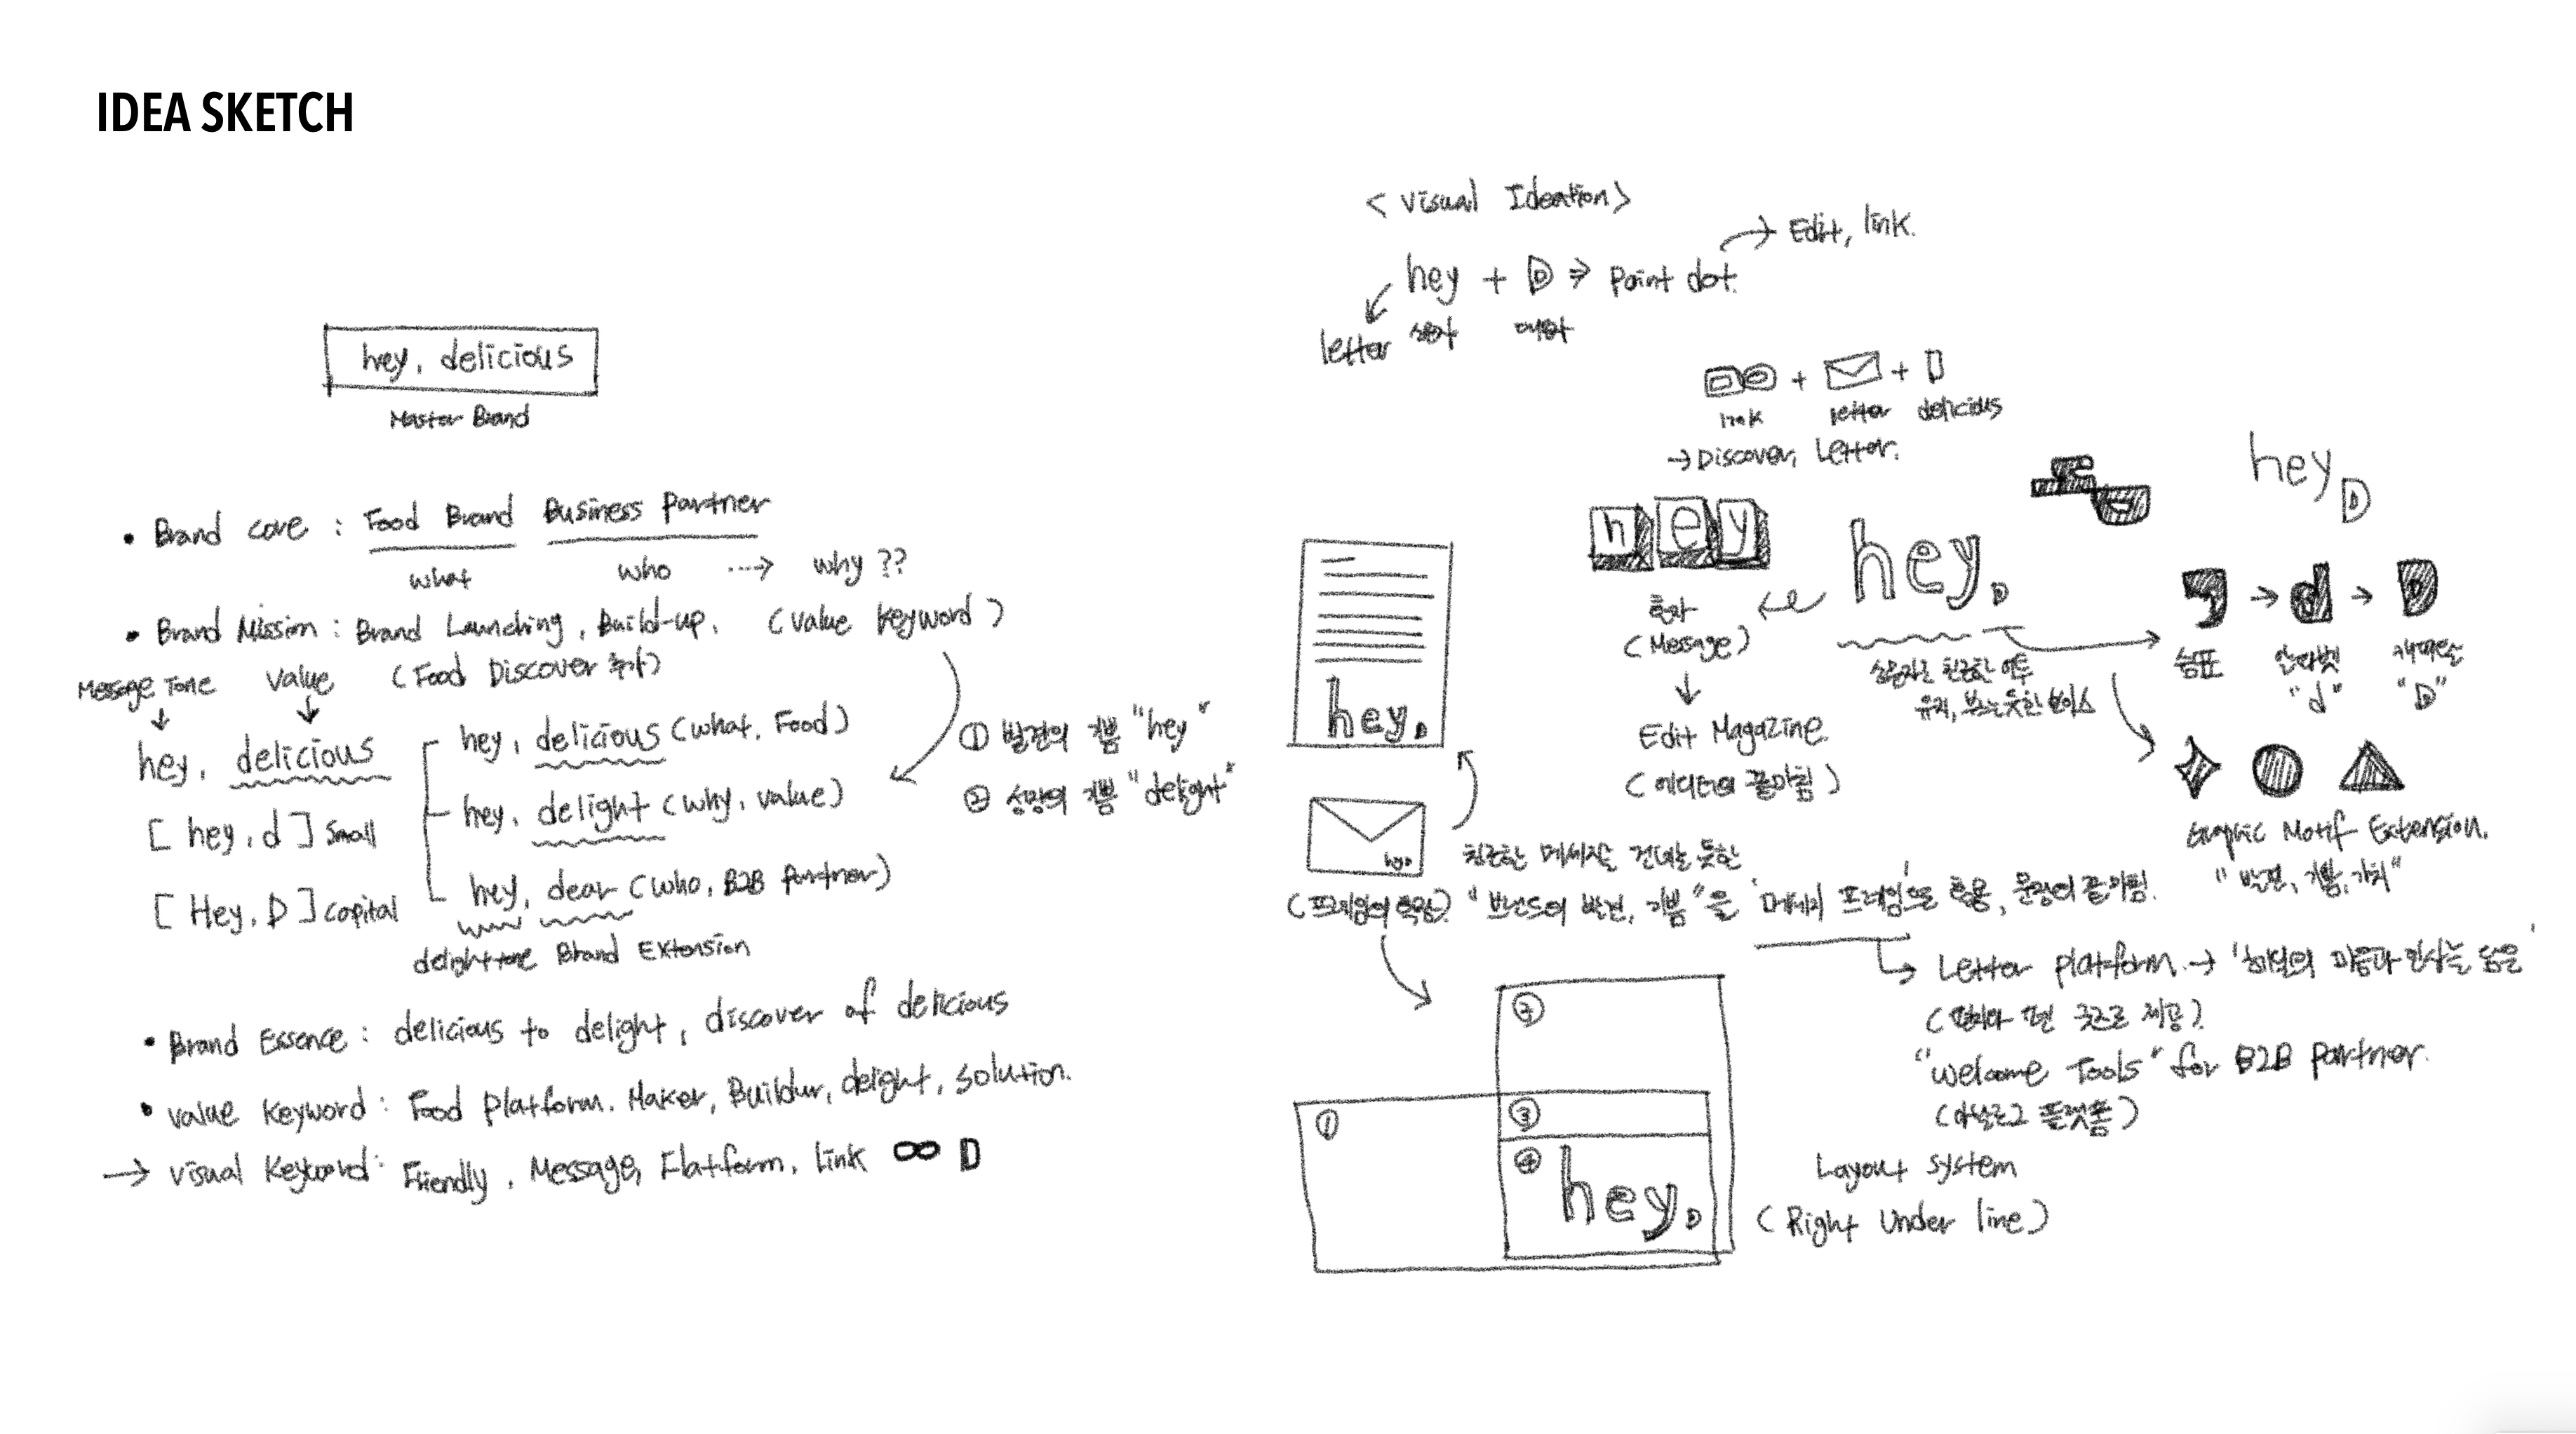 IDEA SKETCH
hey, delicious
Master Brand
• Brand core : Food Brand Business Partner
what who → why ??
• Brand Mission : Brand Launching, Build-up. (value keyword)
(Food Discover 추가)
Message Tone value
hey, delicious
[ hey, d ] small
[ Hey, D ] capital
hey, delicious (what, Food)
hey, delight (why, value)
hey, dear (who, B2B Partner)
delight tone Brand Extension
① 발견의 기쁨 "hey"
② 성장의 기쁨 "delight"
• Brand Essence : delicious to delight, discover of delicious
• value keyword : Food platform. Maker, Buildur, delight, solution.
→ visual keyword : Friendly, Message, Flatform, link ∞ D
< visual Ideation >
hey + D ⇒ Point dot.
→ Edit, link.
letter
link + letter + delicious
→ Discover, Letter.
hey
(Message)
Edit Magazine.
(에디터의 끝마침)
hey.D
hey D
쉼표 → 알파벳 "d" → "D"
Graphic Motif Extension.
"발견, 기쁨, 가치"
hey.D
친근한 메세지를 건네는 듯한
"브랜드의 발견, 기쁨"을 '메세지 프레임'으로 활용, 문장의 끝마침.
Letter platform. →
"welcome Tools" for B2B Partner.
(아날로그 플랫폼)
① ② ③ ④
hey.D
Layout system
(Right under line)